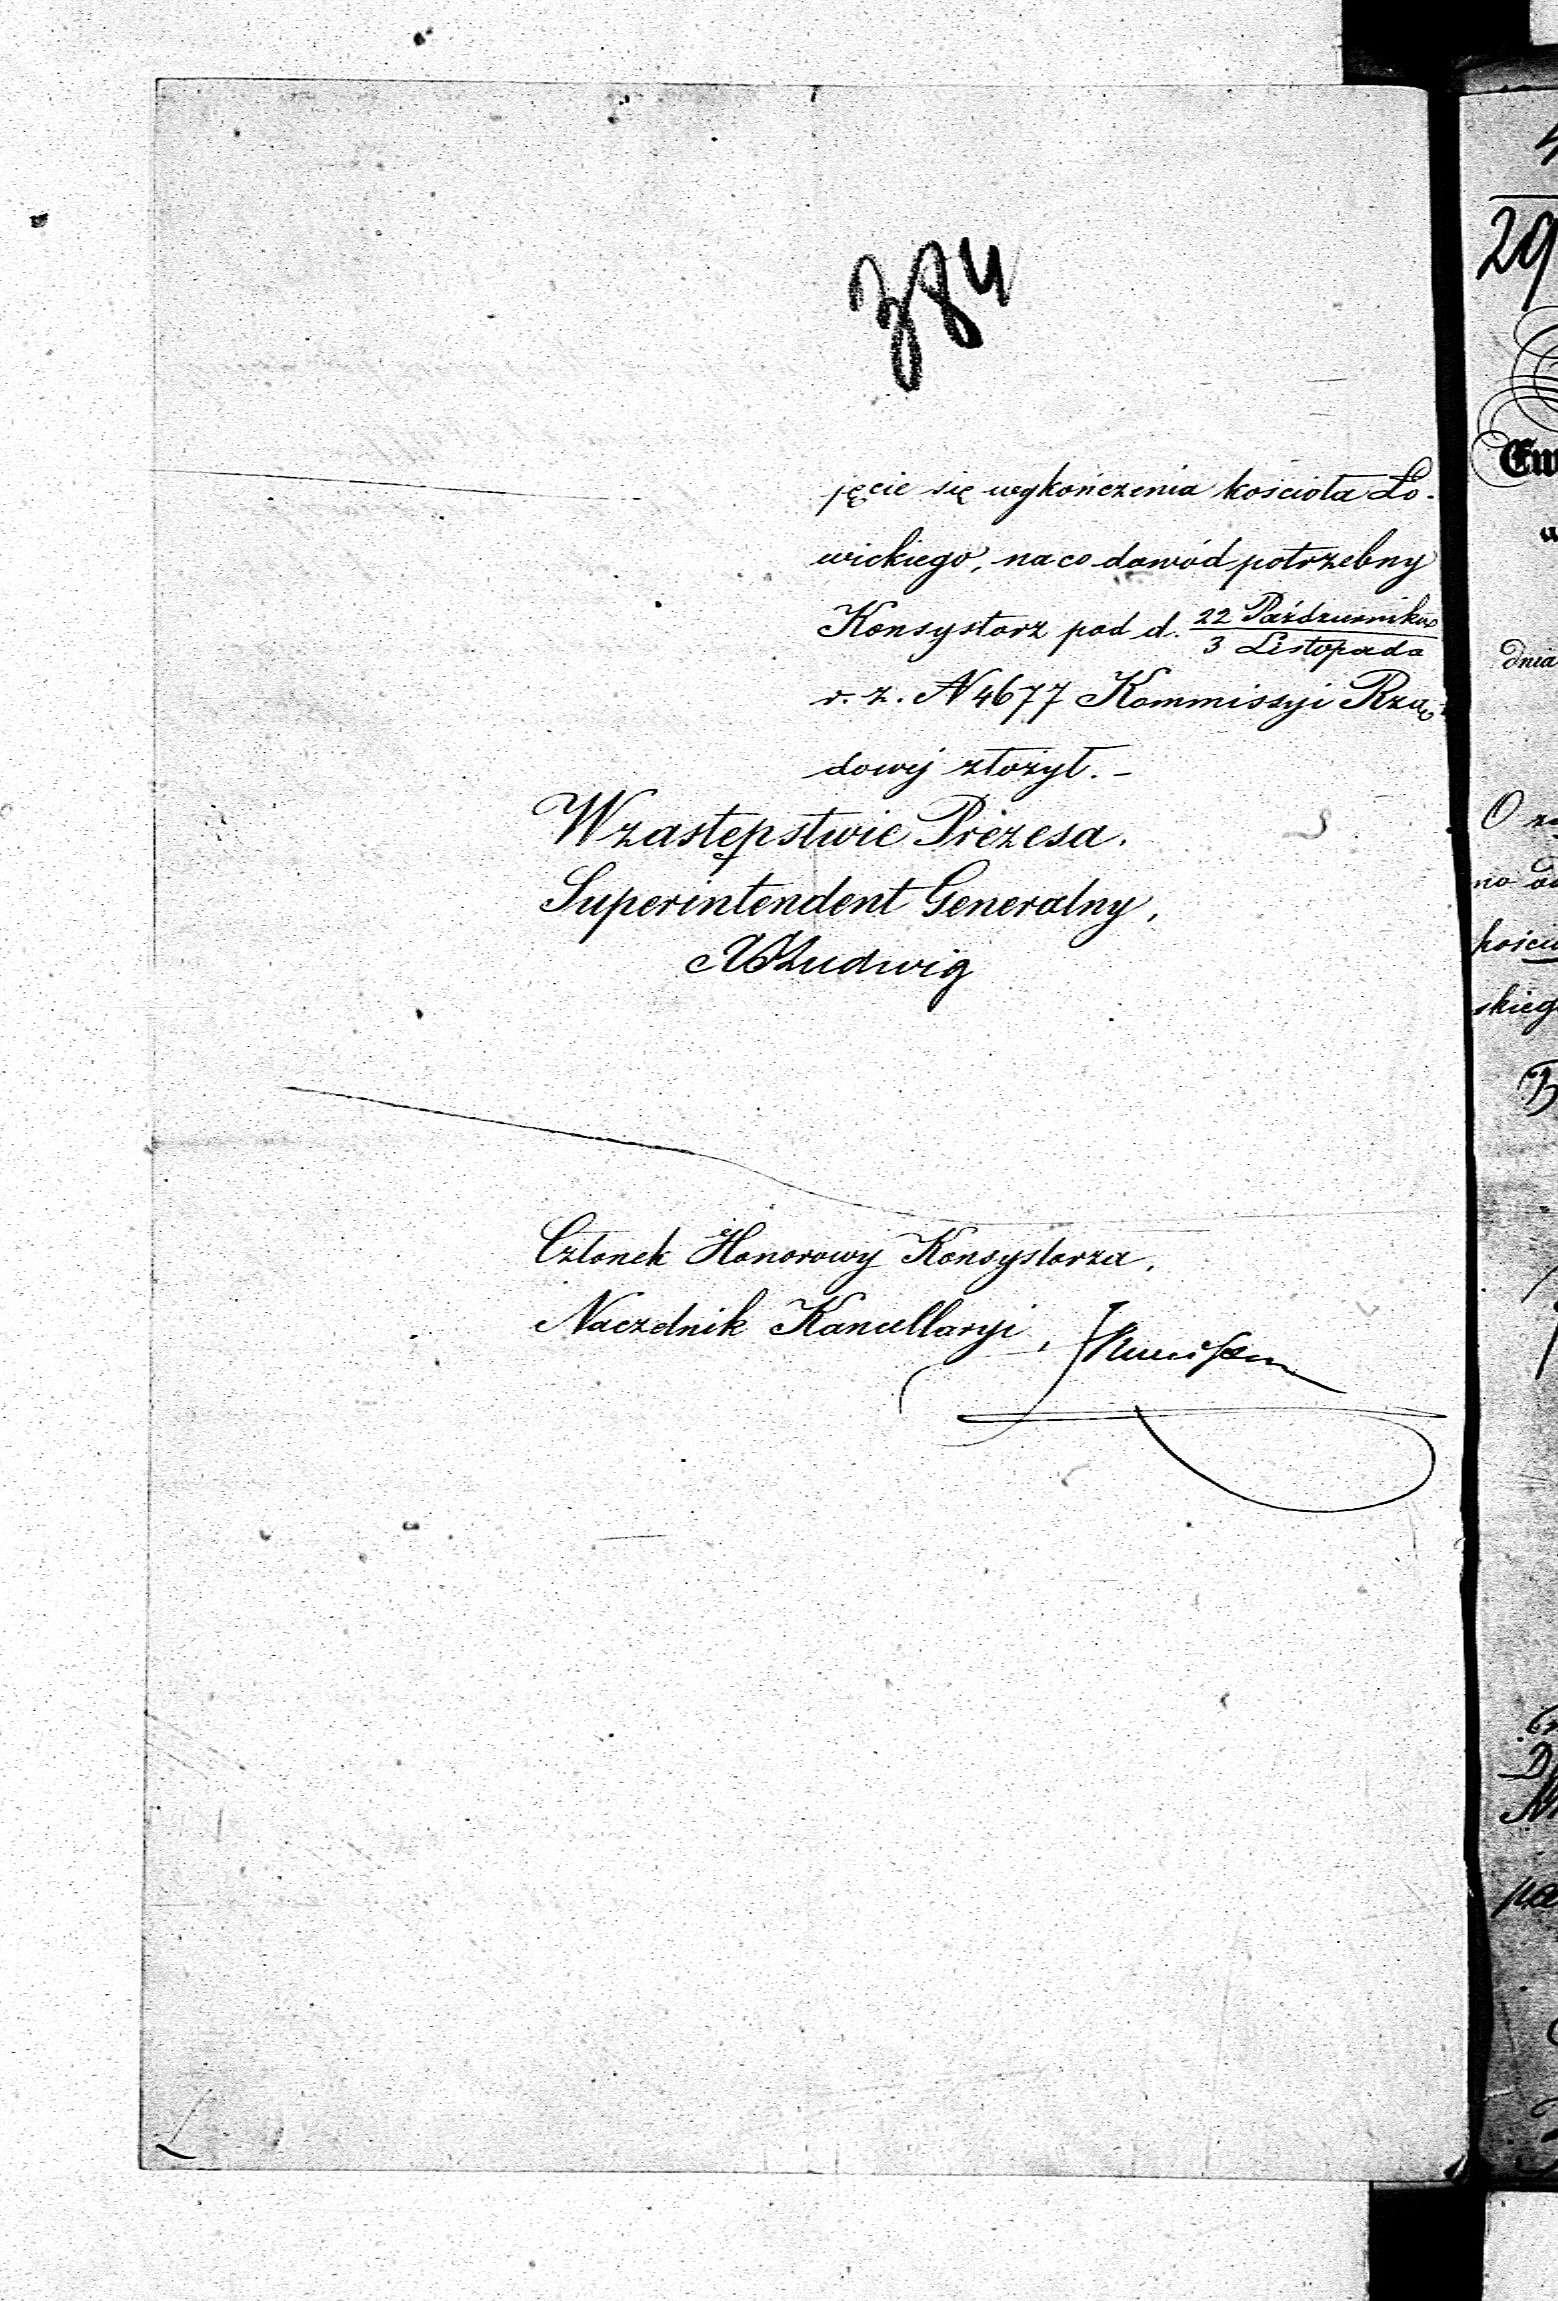 384
jęcie się wykończenia kościoła Ło-
wickiego, na co dowód potrzebny
Konsystorz pod d. 22 Października
3 Listopada
r. z. N 4677 Kommissyi Rzą-
dowej złożył. -
W zastępstwie Prezesa.
Superintendent Generalny,
Ludwig
Członek Honorowy Konsystorza,
Naczelnik Kancellaryi,
29
dnia